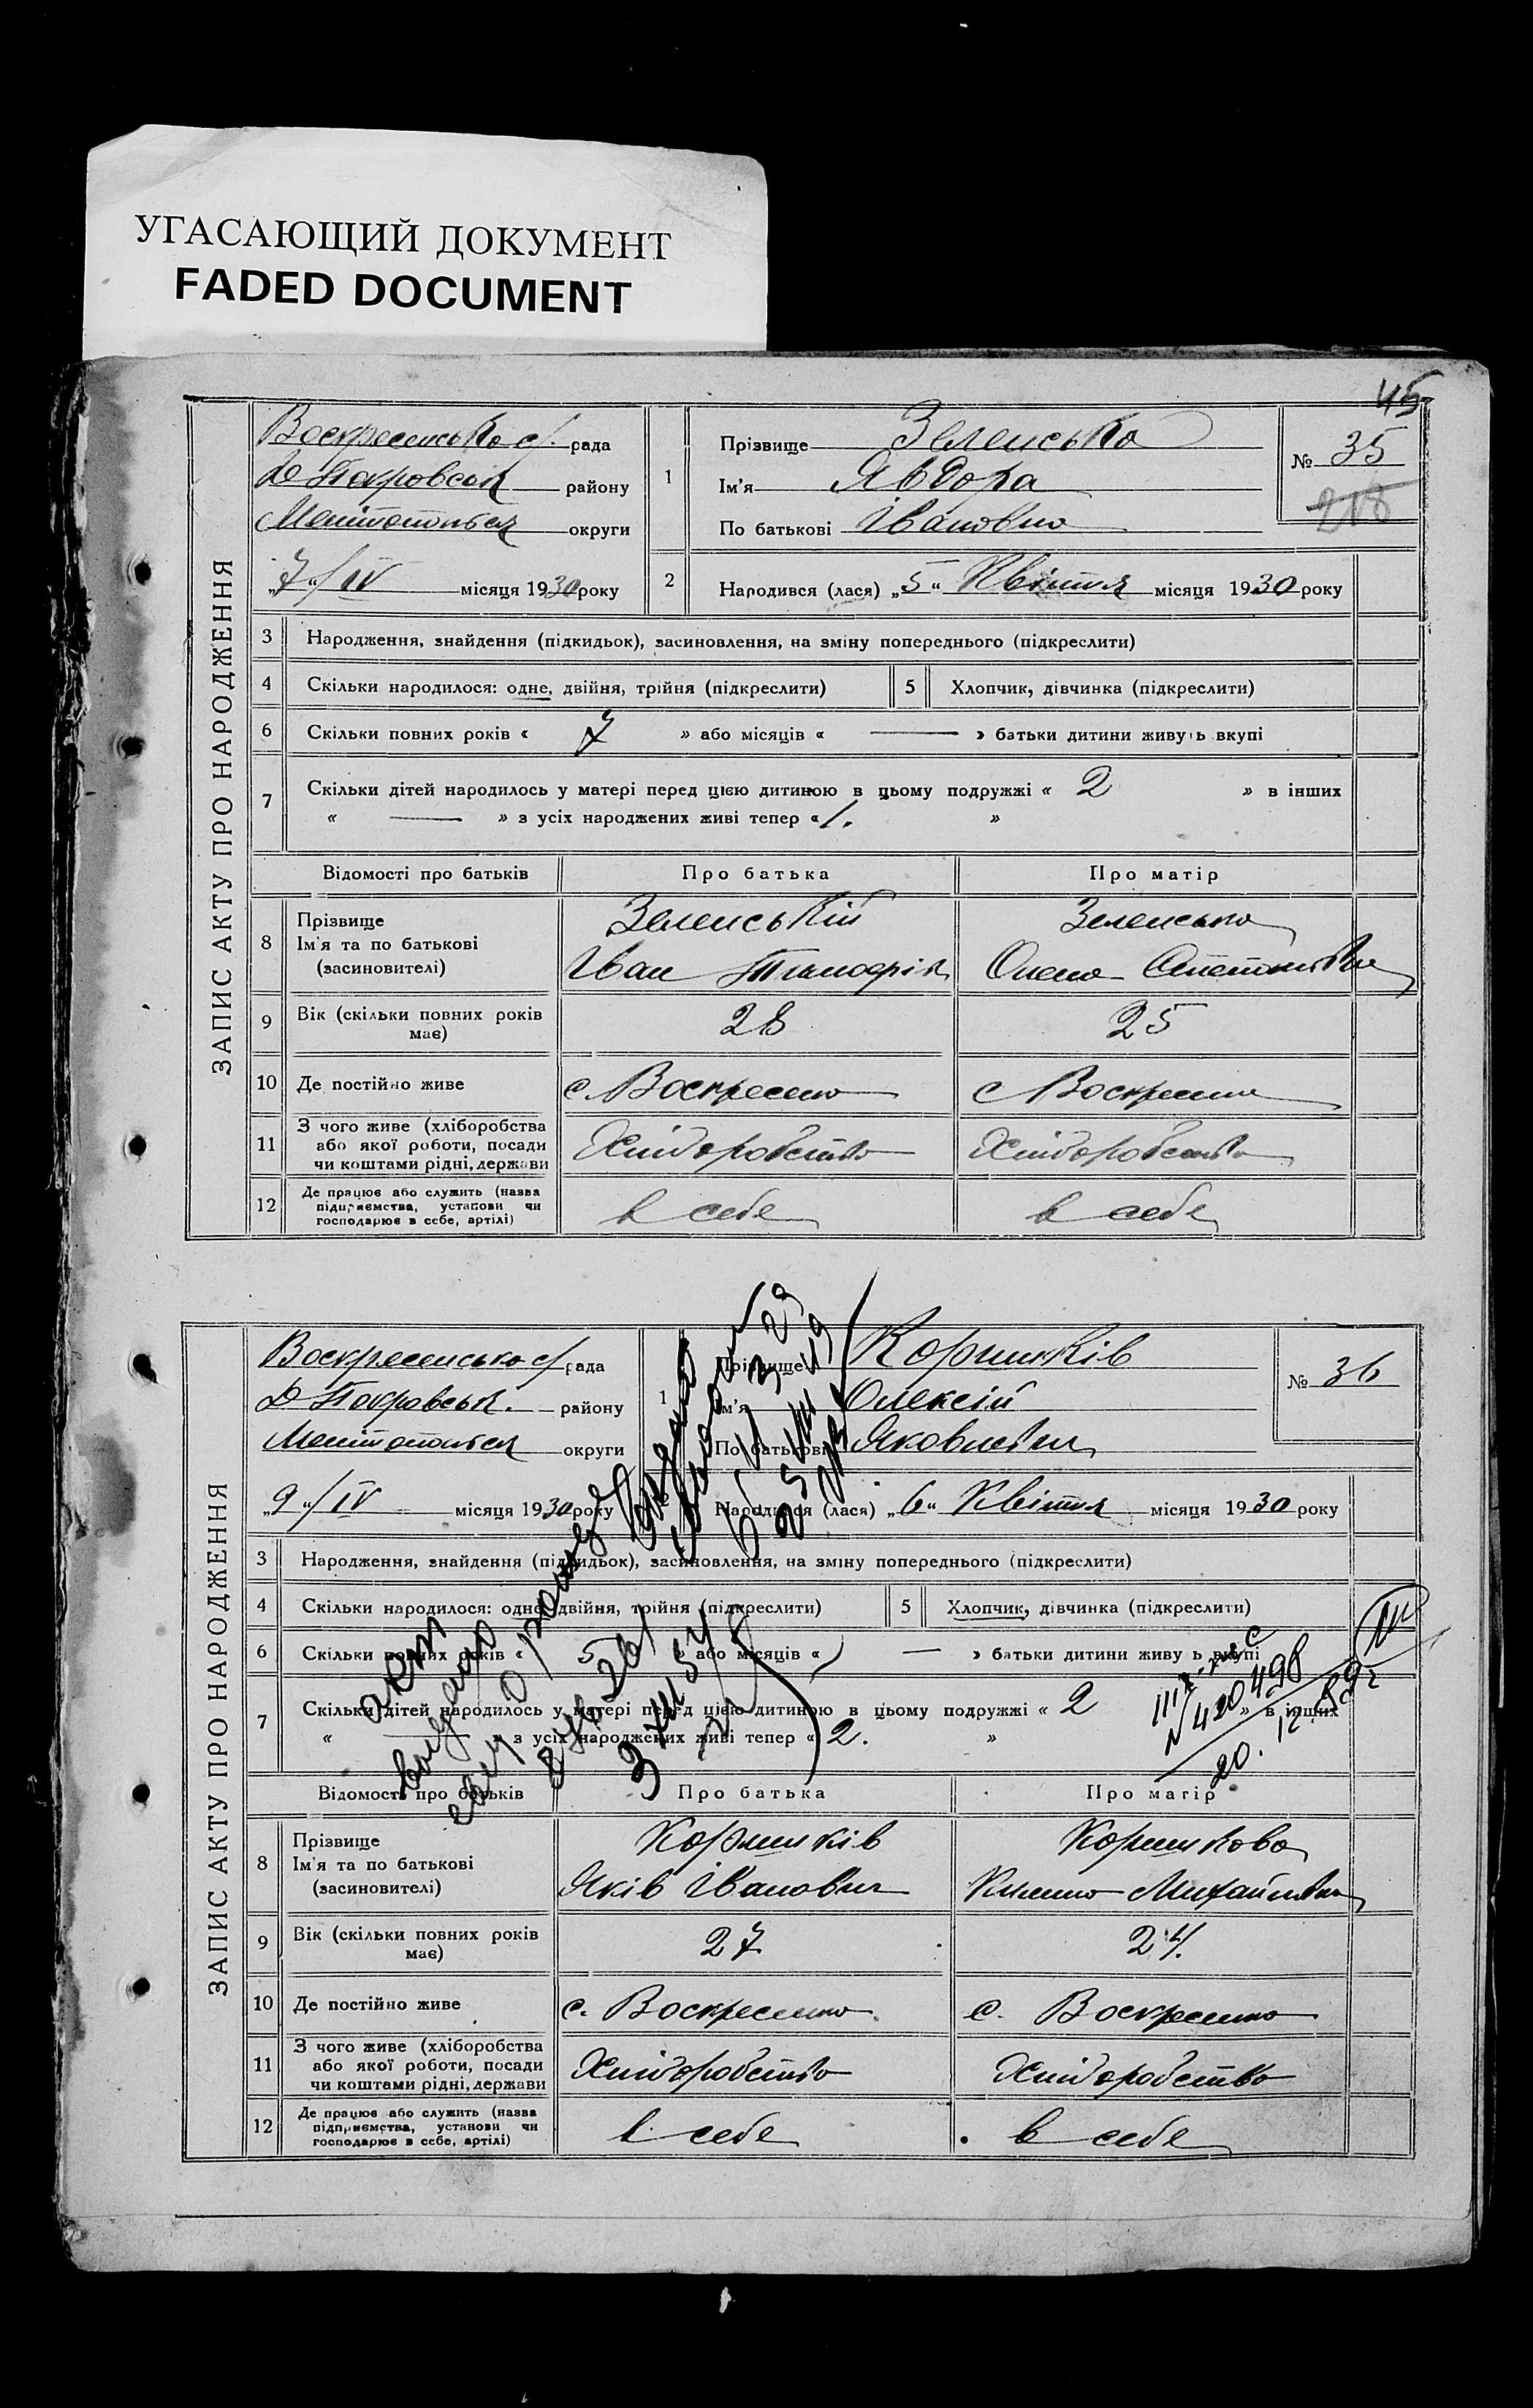 УГАСАЮЩИЙ ДОКУМЕНТ
FADED DOCUMENT
45
ЗАПИС АКТУ ПРО НАРОДЖЕННЯ
Воскресенсько с/. рада
району
округи
„7“/IV місяця 1930 року
1
Прізвище Зеленська
Ім'я Явдоха
По батькові Івановна
№ 35
218
2 Народився (лася) „5“ Квітня місяця 1930 року
3 Народження, знайдення (підкидьок), засиновлення, на зміну попереднього (підкреслити)
4 Скільки народилося: одне, двійня, трійня (підкреслити) 5 Хлопчик, дівчинка (підкреслити)
6 Скільки повних років « 7 » або місяців « — » батьки дитини живуть вкупі
7 Скільки дітей народилось у матері перед цією дитиною в цьому подружжі « 2 » в інших
« — » з усіх народжених живі тепер « 1. »
Відомості про батьків Про батька Про матір
8 Прізвище Зеленській Зеленська
Ім'я та по батькові
(засиновителі) Іван Олена
9 Вік (скільки повних років має) 28 25
10 Де постійно живе с. Воскресенка с Воскресенка
11 З чого живе (хліборобства
або якої роботи, посади Хліборобство Хліборобство
чи коштами рідні, держави
12 Де працює або служить (назва
підприємства, установи чи в себе в себе
господарює в себе, артілі)
ЗАПИС АКТУ ПРО НАРОДЖЕННЯ
Воскресенсько с/ рада
району
округи
„9“/IV місяця 1930 року
1
Прізвище Коршиків
Ім'я Олексій
По батькові Яковлевич
№ 36
Народився (лася) „6“ Квітня місяця 1930 року
3 Народження, знайдення (підкидьок), засиновлення, на зміну попереднього (підкреслити)
4 Скільки народилося: одне, двійня, трійня (підкреслити) 5 Хлопчик, дівчинка (підкреслити)
6 Скільки повних років « 5 » або місяців « — » батьки дитини живу ь вкупі
7 Скільки дітей народилось у матері перед цією дитиною в цьому подружжі « 2 » в інших
« — » з усіх народжених живі тепер « 2. »
420498
20. 12
Відомості про батьків Про батька Про матір
8 Прізвище Коршиків Коршикова
Ім'я та по батькові
(засиновителі) Яків Іванович Михайловна
9 Вік (скільки повних років має) 27 24.
10 Де постійно живе с. Воскресенка с. Воскресенка
11 З чого живе (хліборобства
або якої роботи, посади Хліборобство Хліборобство
чи коштами рідні, держави
12 Де працює або служить (назва
підприємства, установи чи в себе в себе
господарює в себе, артілі)